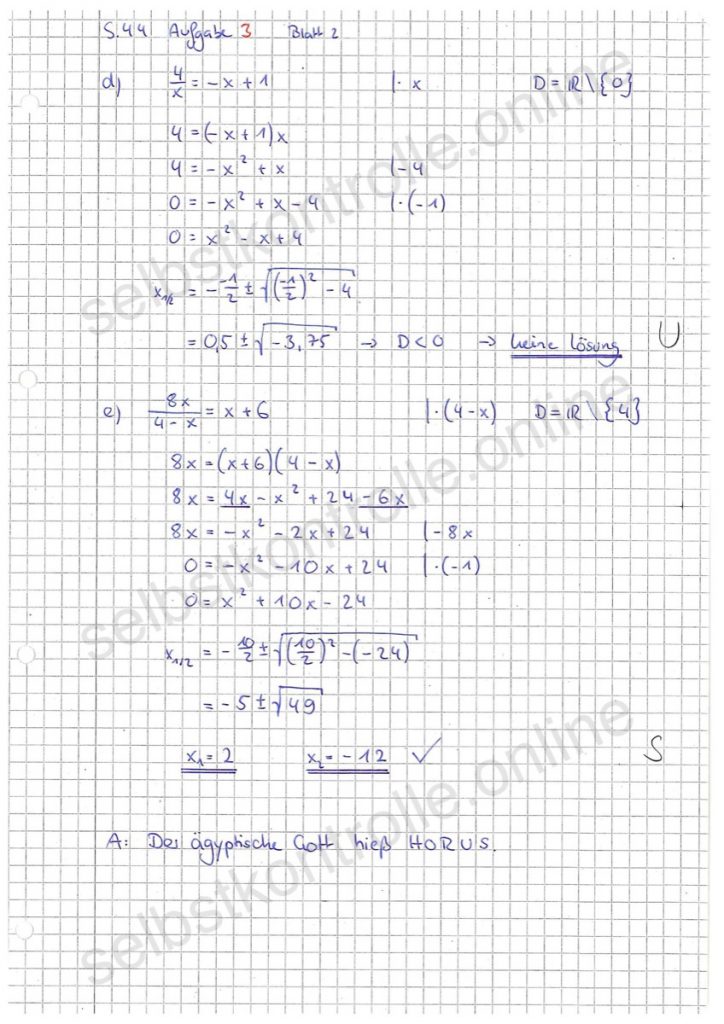 S.44 Aufgabe 3 Blatt 2
d) 4/x = -x + 1 |· x D = ℝ \ {0}
4 = (-x + 1)x
4 = -x² + x |-4
0 = -x² + x - 4 |·(-1)
0 = x² - x + 4
x1/2 = - -1/2 ± √((-1/2)² - 4)
= 0,5 ± √(-3,75) → D < 0 → keine Lösung U
e) 8x/(4 - x) = x + 6 |·(4-x) D = ℝ \ {4}
8x = (x+6)(4 - x)
8x = 4x - x² + 24 - 6x
8x = -x² - 2x + 24 |-8x
0 = -x² - 10x + 24 |·(-1)
0 = x² + 10x - 24
x1/2 = - 10/2 ± √((10/2)² - (-24))
= -5 ± √49
x1 = 2 x2 = -12 ✓ S
A: Der ägyptische Gott hieß HORUS.
selbstkontrolle.online
selbstkontrolle.online
selbstkontrolle.online